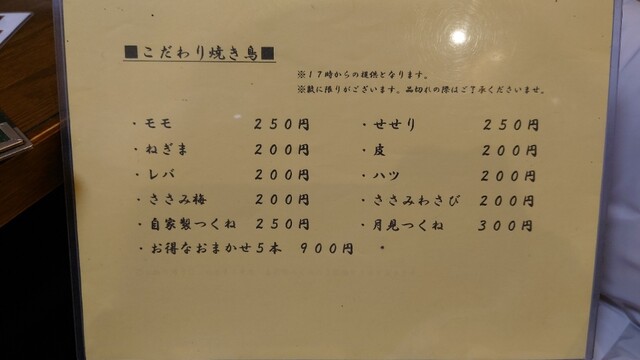 ■こだわり焼き鳥■
※17時からの提供となります。
※数に限りがございます。品切れの際はご了承くださいませ。
・モモ 250円 ・せせり 250円
・ねぎま 200円 ・皮 200円
・レバ 200円 ・ハツ 200円
・ささみ梅 200円 ・ささみわさび 200円
・自家製つくね 250円 ・月見つくね 300円
・お得なおまかせ5本 900円